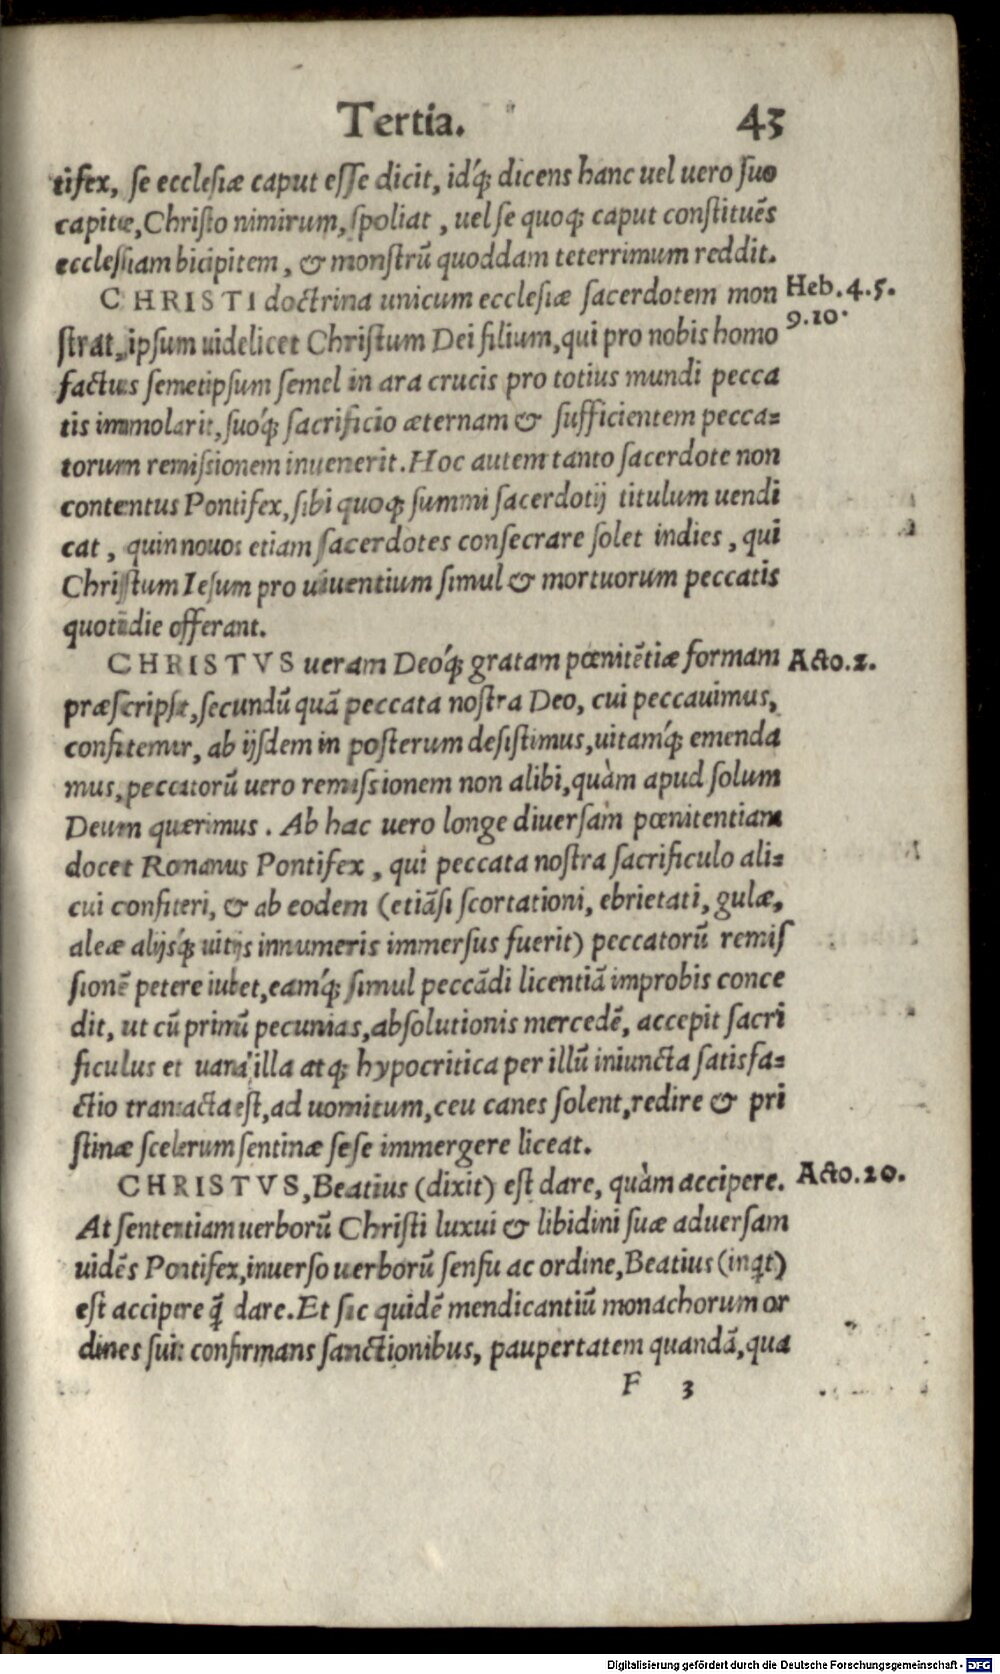 Tertia. 43
tifex, se ecclesiæ caput esse dicit, idq́; dicens hanc uel uero suo
capite, Christo nimirum, spoliat, uel se quoq; caput constituẽs
ecclesiam bicipitem, & monstrũ quoddam teterrimum reddit.
CHRISTI doctrina unicum ecclesiæ sacerdotem mon
Heb. 4. 5.
9. 10.
strat, ipsum uidelicet Christum Dei filium, qui pro nobis homo
factus semetipsum semel in ara crucis pro totius mundi pecca
tis immolarit, suóq; sacrificio æternam & sufficientem pecca=
torum remissionem inuenerit. Hoc autem tanto sacerdote non
contentus Pontifex, sibi quoq; summi sacerdotij titulum uendi
cat, quin nouos etiam sacerdotes consecrare solet indies, qui
Christum Iesum pro uiuentium simul & mortuorum peccatis
quotidie offerant.
CHRISTVS ueram Deóq; gratam pœnitẽtiæ formam
Acto. 2.
præscripsit, secundũ quã peccata nostra Deo, cui peccauimus,
confitemur, ab ijsdem in posterum desistimus, uitamq́; emenda
mus, peccatorũ uero remissionem non alibi, quàm apud solum
Deum quærimus. Ab hac uero longe diuersam pœnitentiam
docet Romanus Pontifex, qui peccata nostra sacrificulo ali=
cui confiteri, & ab eodem (etiãsi scortationi, ebrietati, gulæ,
aleæ alijsq́; uitijs innumeris immersus fuerit) peccatorũ remis
sionẽ petere iubet, eamq́; simul peccãdi licentiã improbis conce
dit, ut cũ primũ pecunias, absolutionis mercedẽ, accepit sacri
ficulus et uana illa atq; hypocritica per illũ iniuncta satisfa=
ctio transacta est, ad uomitum, ceu canes solent, redire & pri
stinæ scelerum sentinæ sese immergere liceat.
CHRISTVS, Beatius (dixit) est dare, quàm accipere.
Acto. 20.
At sententiam uerborũ Christi luxui & libidini suæ aduersam
uidẽs Pontifex, inuerso uerborũ sensu ac ordine, Beatius (inqt)
est accipere q̃ dare. Et sic quidẽ mendicantiũ monachorum or
dines suis confirmans sanctionibus, paupertatem quandã, qua
F 3
Digitalisierung gefördert durch die Deutsche Forschungsgemeinschaft - DFG